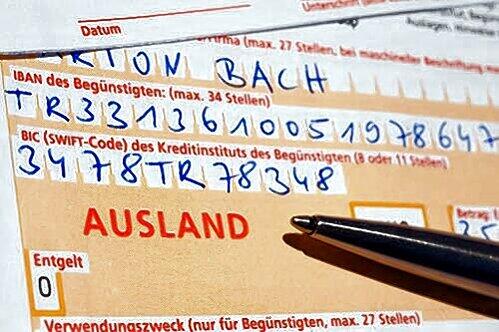 Datum
Unterschrift
(max. 27 Stellen, bei maschineller Beschriftung
RTON BACH
IBAN des Begünstigten: (max. 34 Stellen)
TR3313610051978647
BIC (SWIFT-Code) des Kreditinstituts des Begünstigten (8 oder 11 Stellen)
3478TR78348
AUSLAND
Betrag:
Entgelt
0
Verwendungszweck (nur für Begünstigten, max. 27 Stellen)